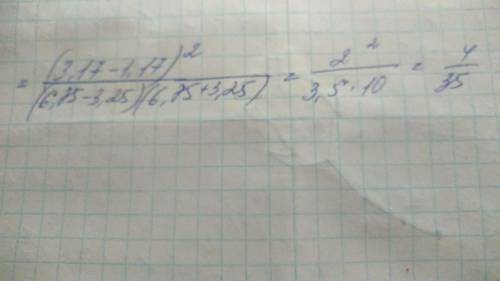 = (3,17-1,17)² / (6,75-3,25)(6,75+3,25) = 2² / 3,5·10 = 4/35